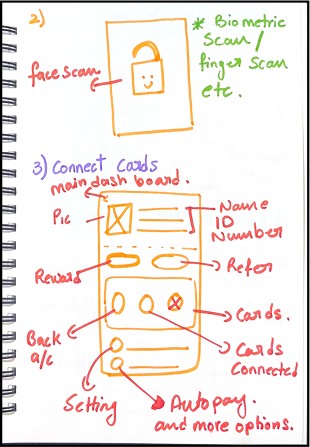 2)
* Biometric
Scan /
finger Scan
etc.
face scan
3) Connect Cards
main dash board.
Pic
Name
ID
Number
Reward
Refer
Cards.
Back
a/c
Cards
Connected
Setting
Autopay.
and more options.